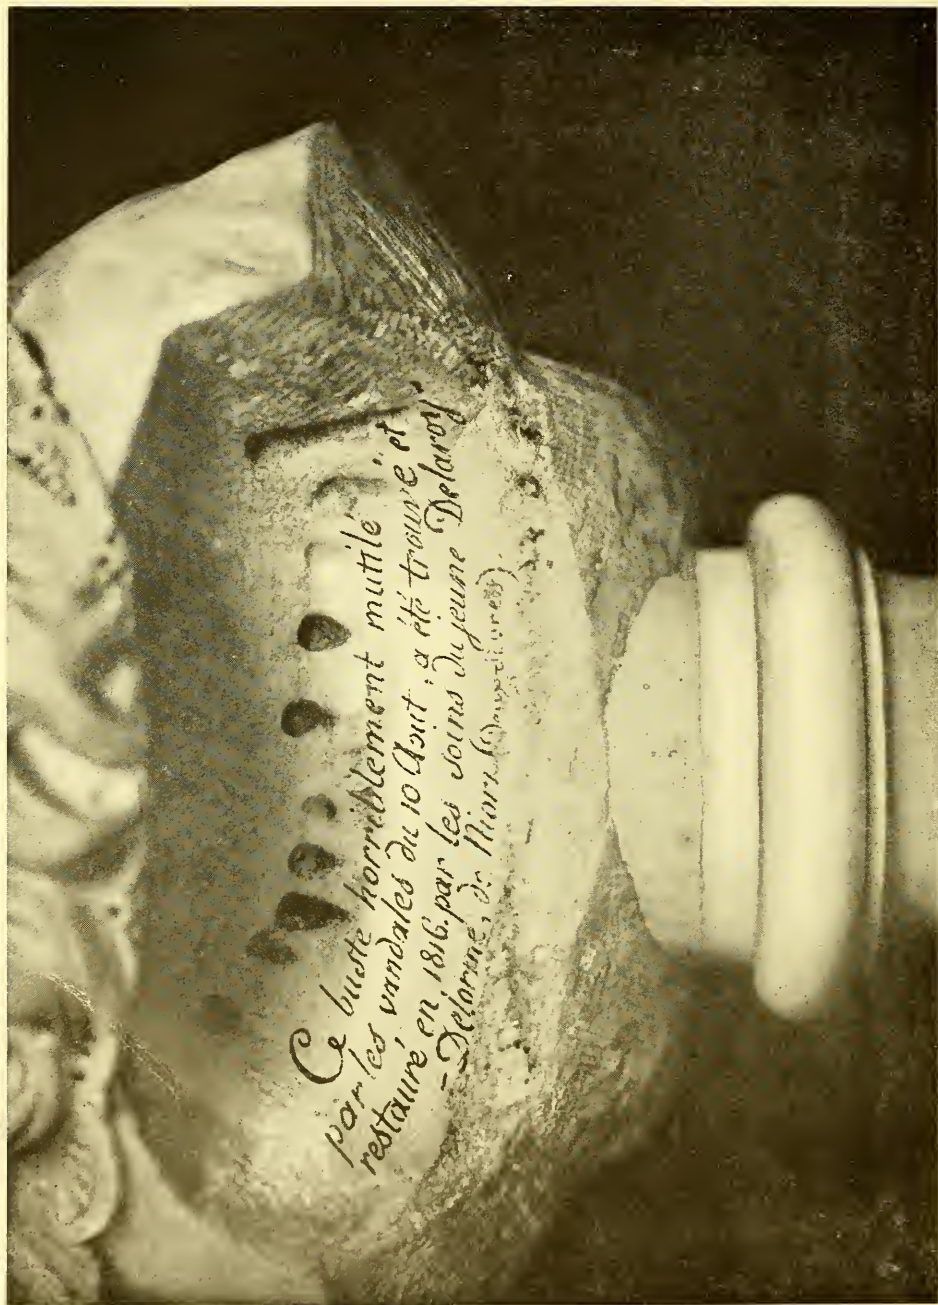 Ce buste horriblement mutilé
par les vandales du 10 Aout, a été trouvé et
restauré en 1816. par les soins du jeune Delaroy
- Delorme, de Niort